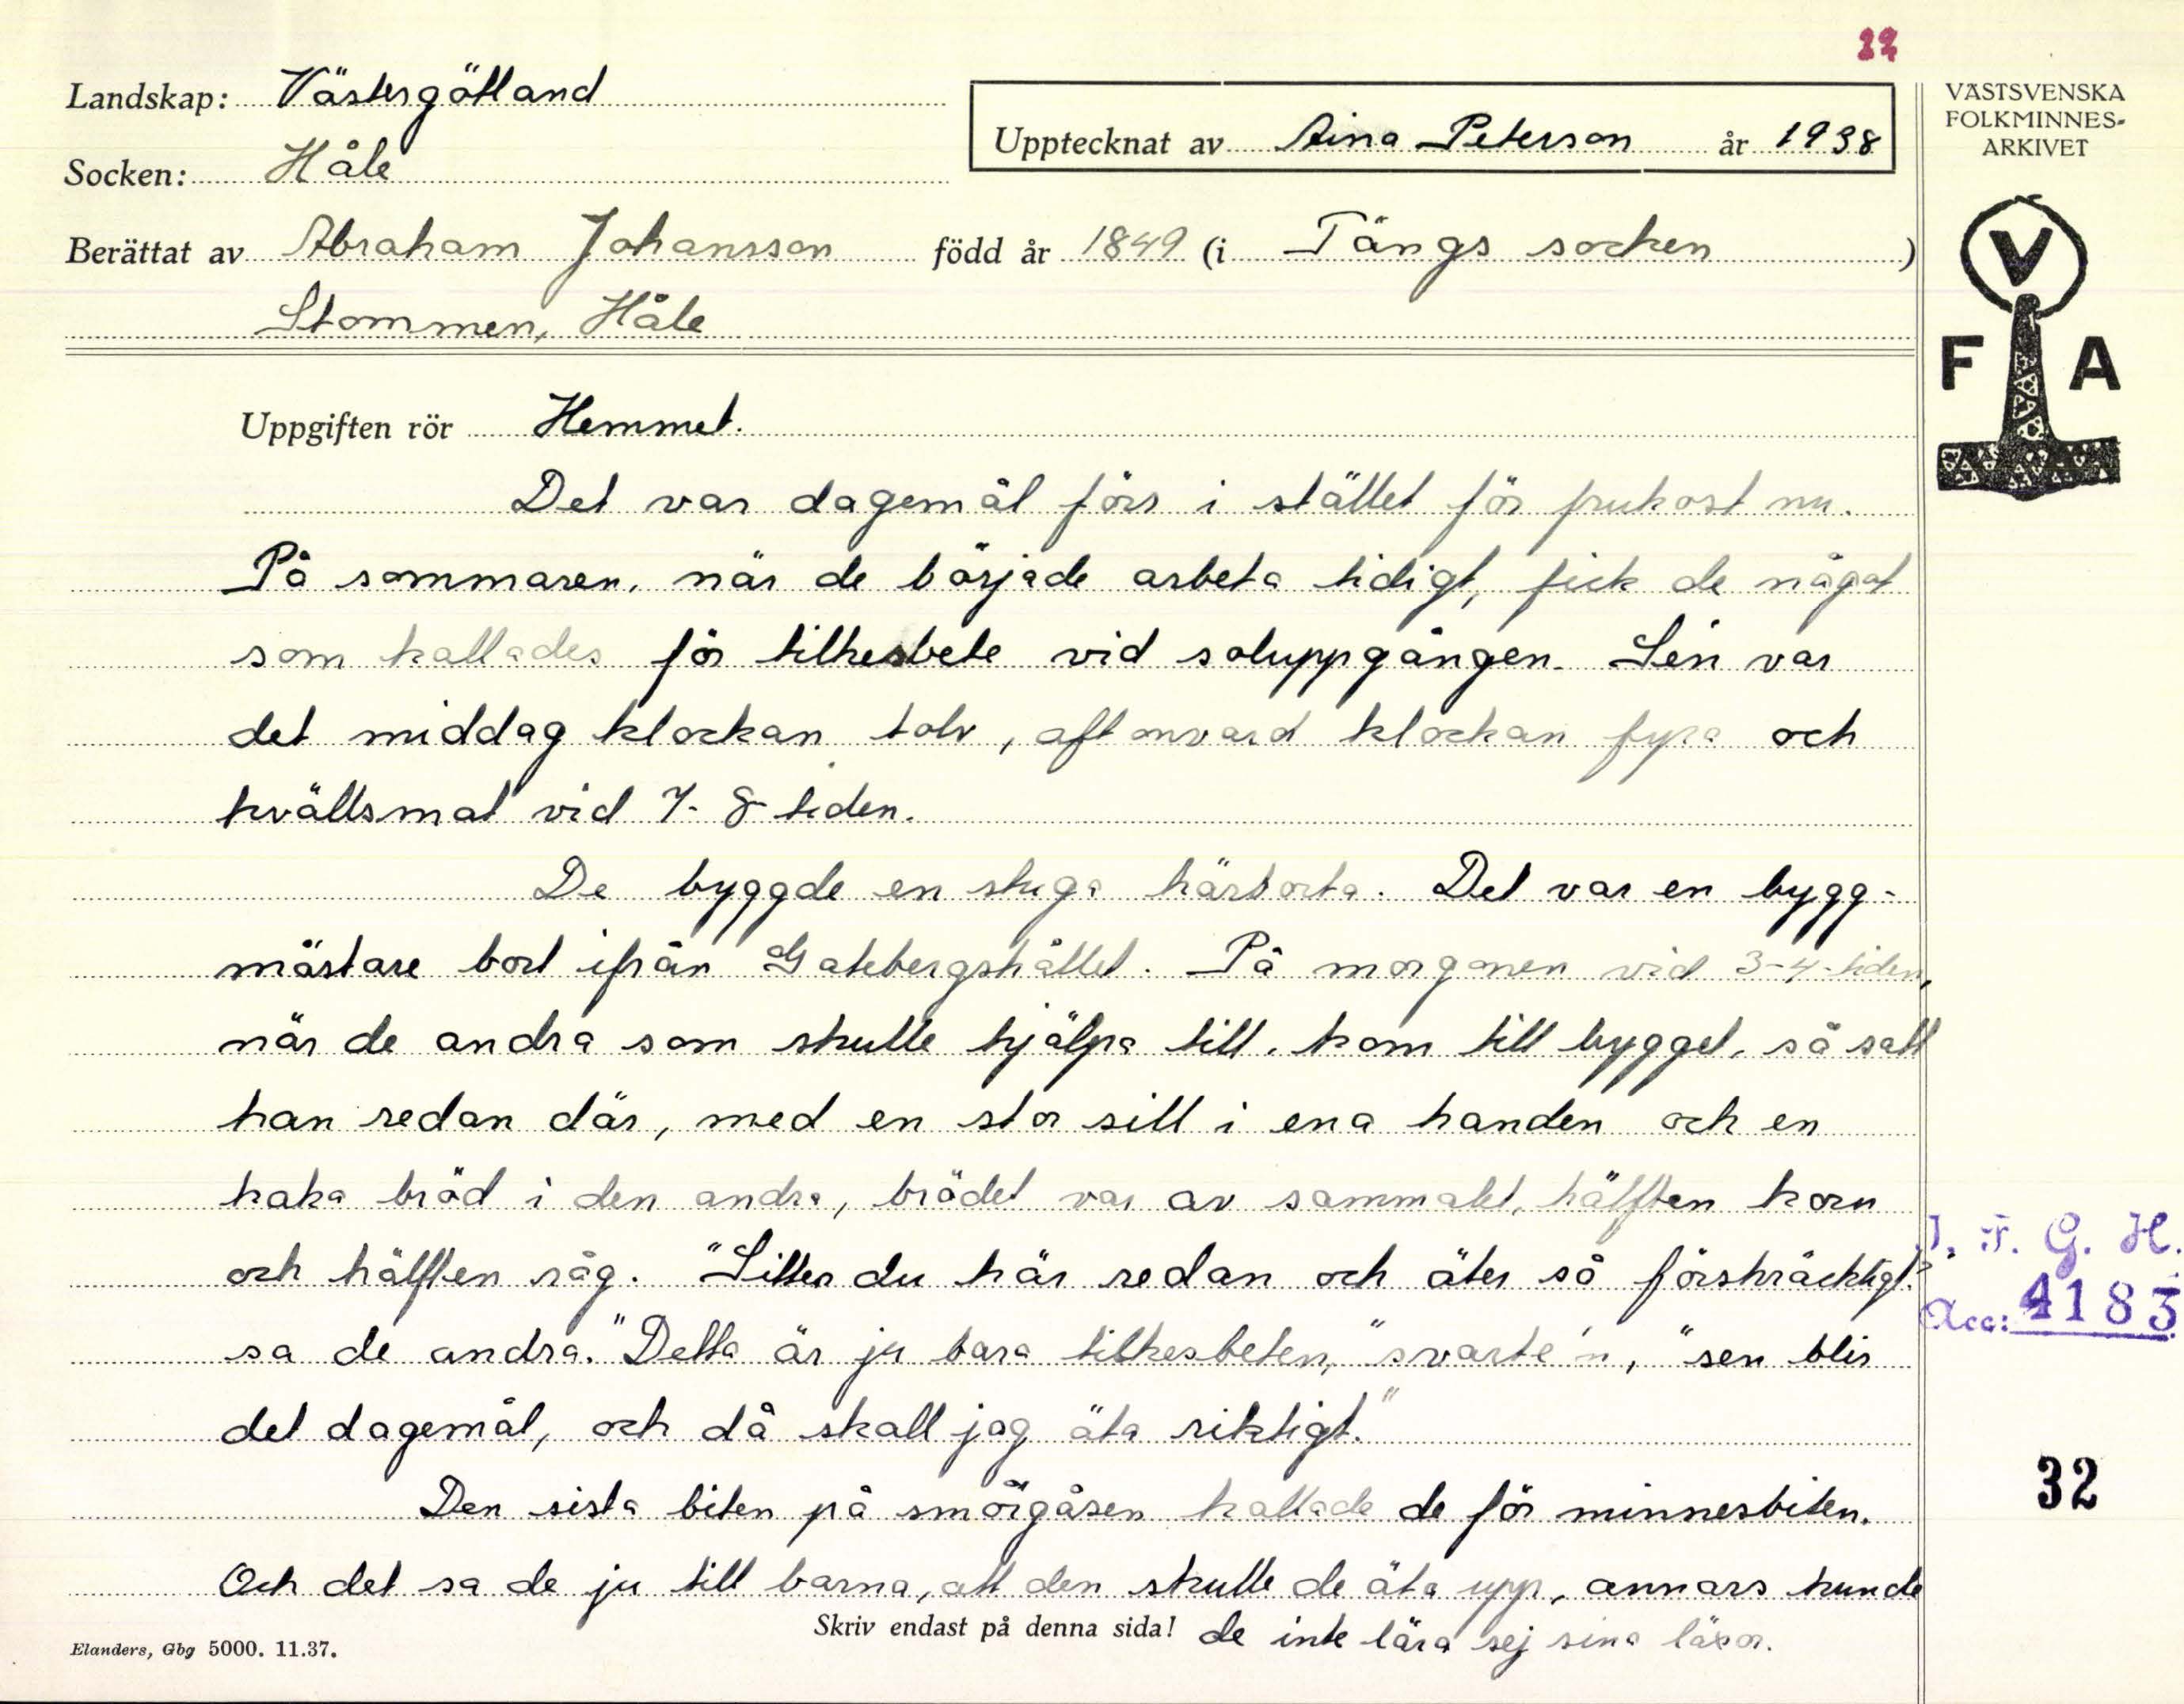 22
Landskap: Västergötland
Socken: Håle
Upptecknat av Aina Peterson år 1938
Berättat av Abraham Johansson född år 1849 (i Tängs socken)
Stommen, Håle
VÄSTSVENSKA
FOLKMINNES-
ARKIVET
V
F A
Uppgiften rör Hemmet.
Det var dagemål förr i stället för frukost nu.
På sommaren, när de började arbeta tidigt, fick de något
som kallades för tilkesbete vid soluppgången. Sen var
det middag klockan tolv, aftonvard klockan fyra och
kvällsmat vid 7-8-tiden.
De byggde en stuga härborta. Det var en bygg-
mästare bort ifrån Gatebergshållet. På morgonen vid 3-4-tiden,
när de andra som skulle hjälpa till, kom till bygget, så satt
han redan där, med en stor sill i ena handen och en
kaka bröd i den andra, brödet var av sammalet, hälften korn
och hälften råg. "Sitter du här redan och äter så förskräckligt?"
sa de andra. "Detta är ju bara tilkesbeten," svarte'n, "sen blir
det dagemål, och då skall jag äta riktigt."
Den sista biten på smörgåsen kallade de för minnesbiten.
Och det sa de ju till barna, att den skulle de äta upp, annars kunde
de inte lära sej sina läxor.
Skriv endast på denna sida!
Elanders, Gbg 5000. 11.37.
I. F. G. H.
Acc: 4183
32